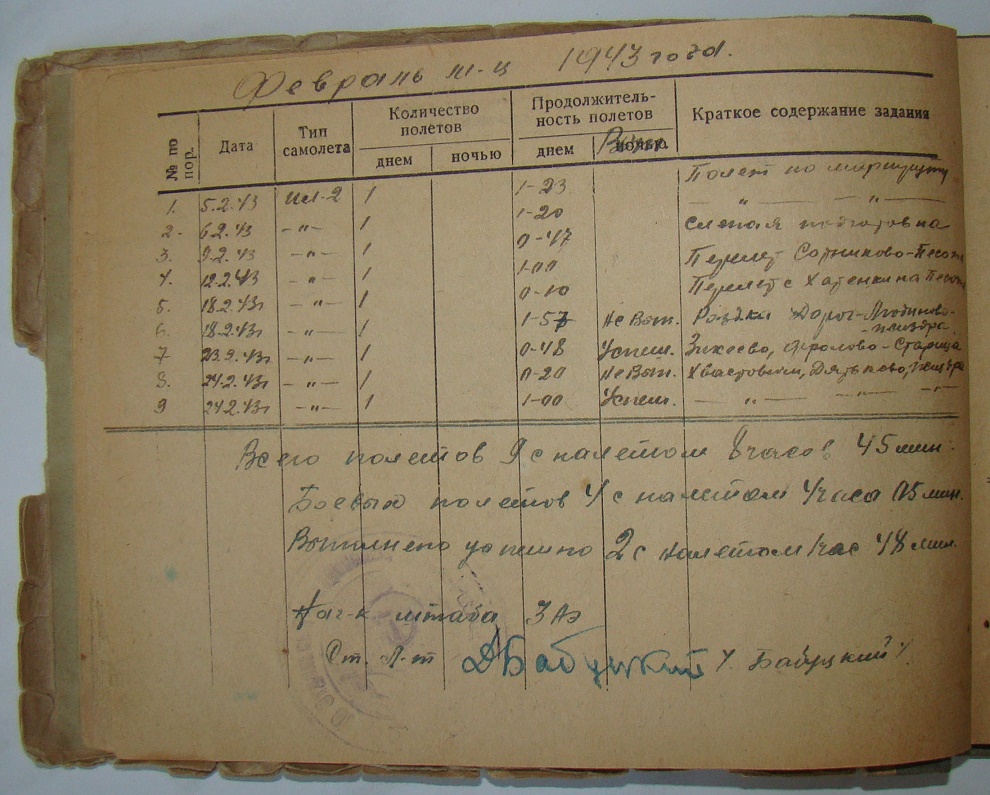 Февраль м-ц 1943 года.
№ по пор. Дата Тип самолета Количество полетов Продолжительность полетов Краткое содержание задания
днем ночью днем ночью
1. 5.2.43 Ил-2 1 1-23 Полет по маршруту
2. 6.2.43 —"— 1 1-20 — " — — " —
3. 9.2.43 —"— 1 0-47 Слепая подготовка
4. 12.2.43 —"— 1 1-00 Перелет Сотниково-
5. 18.2.43г —"— 1 0-10 Перелет с Хатенки на
6. 18.2.43г —"— 1 1-57 Не Вып. Разведка Дорог-Людиново-
7 23.2.43г —"— 1 0-48 Успеш. Зикеево, Фролово-Старица
8. 24.2.43г —"— 1 0-20 Не Вып. Хвастовичи, Дятьково,
9 24.2.43г —"— 1 1-00 Успеш. — " — —"—
Всего полетов 9 с налетом 8 часов 45 мин.
Боевых полетов 4 с налетом 4 часа 05 мин.
Выполнено успешно 2 с налетом 1 час 48 мин.
Нач-к штаба 3 АЭ
Ст. Л-т ДБабуцкий / Бабуцкий /.